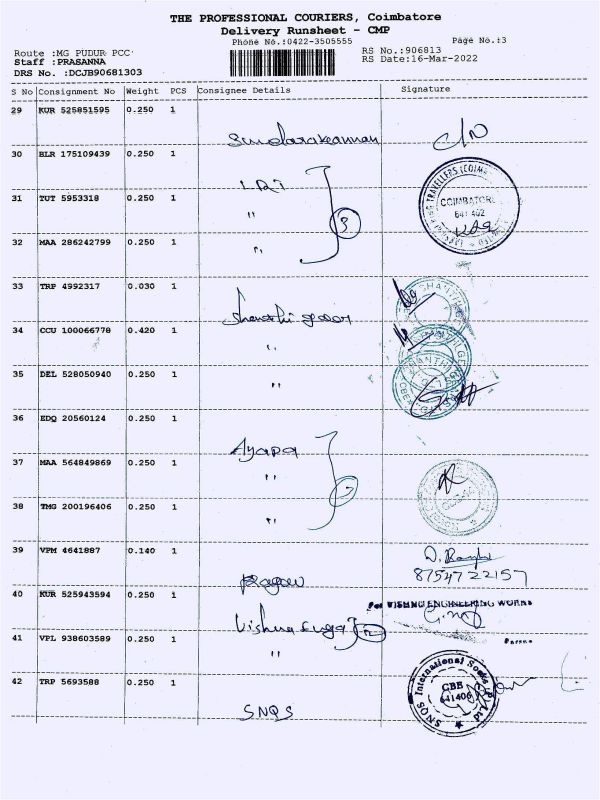 THE PROFESSIONAL COURIERS, Coimbatore
Delivery Runsheet - CMP
Phone No.:0422-3505555
Page No.:3
Route :MG PUDUR PCC
RS No.:906813
Staff :PRASANNA
RS Date:16-Mar-2022
DRS No. :DCJB90681303
S No Consignment No Weight PCS Consignee Details Signature
29 KUR 525851595 0.250 1
C/N
30 BLR 175109439 0.250 1
31 TUT 5953318 0.250 1 "
COIMBATORE
641 402
3
32 MAA 286242799 0.250 1 "
33 TRP 4992317 0.030 1
34 CCU 100066778 0.420 1 "
35 DEL 528050940 0.250 1 "
36 EDQ 20560124 0.250 1
Ayapa
37 MAA 564849869 0.250 1 "
38 TMG 200196406 0.250 1 "
39 VPM 4641887 0.140 1
87547 22157
Ragav
40 KUR 525943594 0.250 1
For VISHNU ENGINEERING WORKS
Vishnu
41 VPL 938603589 0.250 1 "
42 TRP 5693588 0.250 1
SNQS International Socks
CBE
641406
SNQS